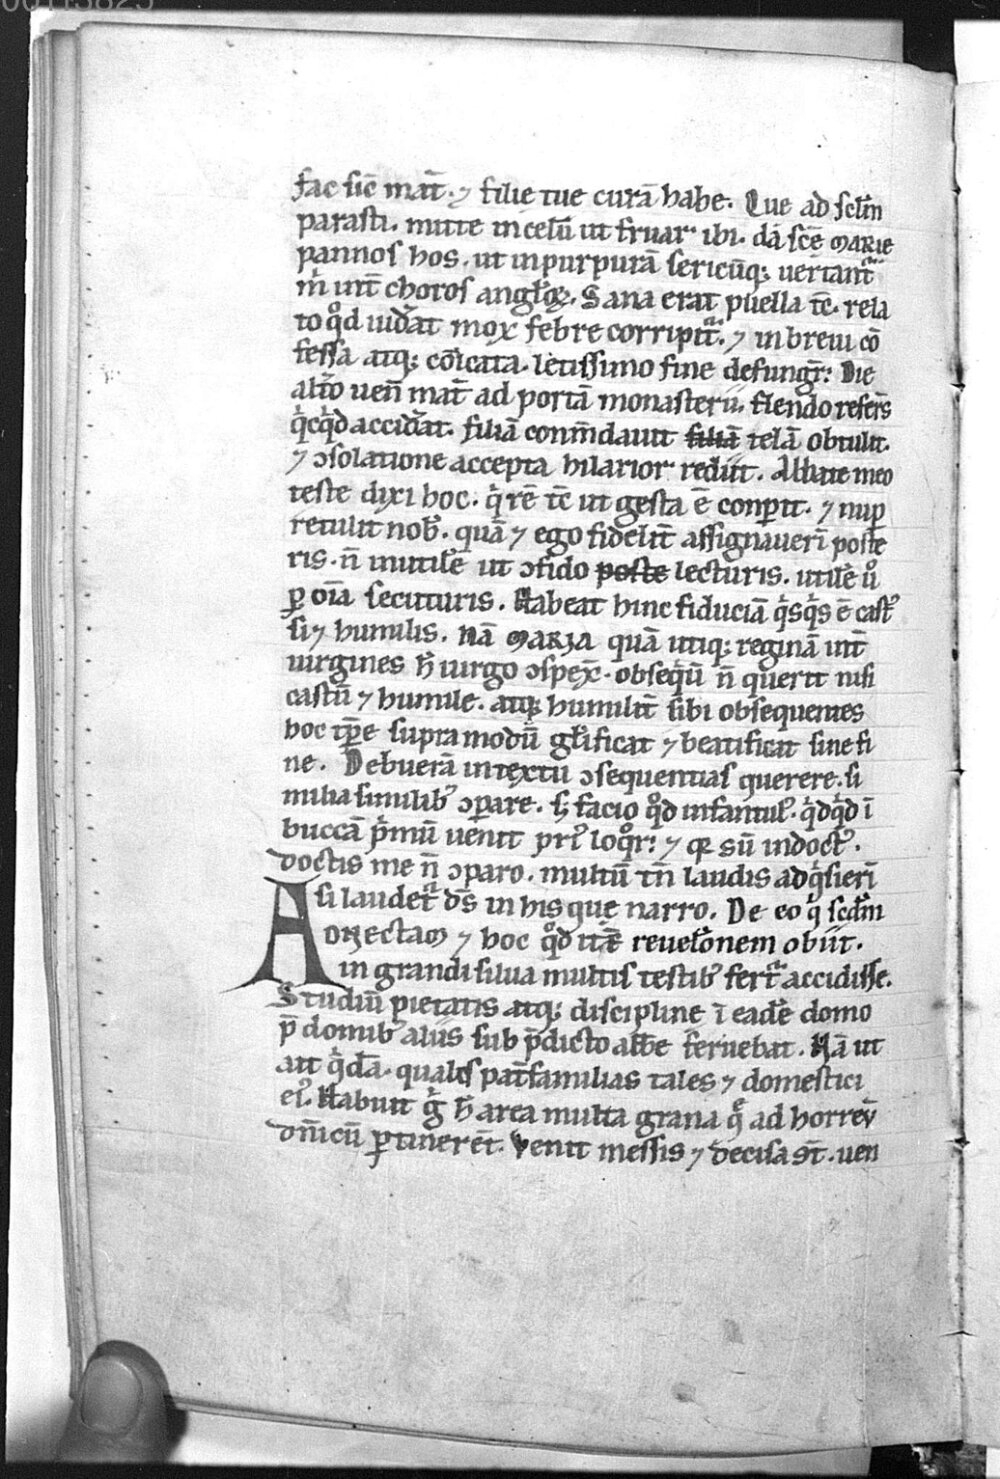 00113825
fac sic̄ mat̄. ⁊ filie tue curā habe. Que ad sclm̄
parasti. mitte in celū ut fruar ibi. dā sc̄e MARIE
pannos hos. ut in purpurā sericūq; uertant᷑
m̄ int̄ choros angl̓oꝝ. Sana erat puella tc̄. rela
to qd̓ uidāt mox febre corripit᷑. ⁊ in breui cō
fessa atq; cōicata. letissimo fine defungr̄. Die
alio uen̄ mat̄ ad portā monasterii. flendo referēs
qͥcqͥd accidāt. filiā conm̄dauit filiā telā obtulit.
⁊ ɔsolatione accepta hilarior rediit. Abbate meo
teste dixi hoc. qͥ rē tc̄ ut gesta ē conp̄it. ⁊ nup̄
retulit nob̓. quā ⁊ ego fidelit̄ assignauerī poste
ris. n̄ inutile ut ɔfido poste lecturis. utilē u̓
ꝑ oīa secuturis. Habeat hinc fiduciā qͥsqͥs ē cast̓
si ⁊ humilis. nā MARIA quā utiq; reginā int̄
uirgines h̄ uirgo ɔspex̄. obseqͥū n̄ querit nisi
castū ⁊ humile. atq; humilit̄ sibi obsequentes
hoc tp̄e supra modū gl̓ificat ⁊ beatificat sine fi
ne. Debuerā in textu ɔsequentias querere. si
milia similib̓ ɔparare. s; facio qd̓ infantul̓. qͥdqͥd ī
buccā pͥmū uenit pri̓ loqr̓. ⁊ qꝛ sū indoct̓.
doctis me n̄ ɔparo. multū tn̄ laudis adqͥsierī
si laudet᷑ ds̄ in his que narro. De eo qͥ scdm̄
A ⁊ hoc qd̓ reuel̓onem obiit.
in grandi silua multis testib̓ fert᷑ accidisse.
Studiū pietatis atq; discipline ī eadē domo
p̄ domib̓ aliis sub p̄dicto abb̄e feruebat. Nā ut
ait qͥdā. qualis pat̄familias tales ⁊ domestici
ei̓. Habuit g̓ h̄ area multa grana q̄ ad horreū
dn̄icū ꝑtinerēt. Venit messis ⁊ decisa st̄. uen